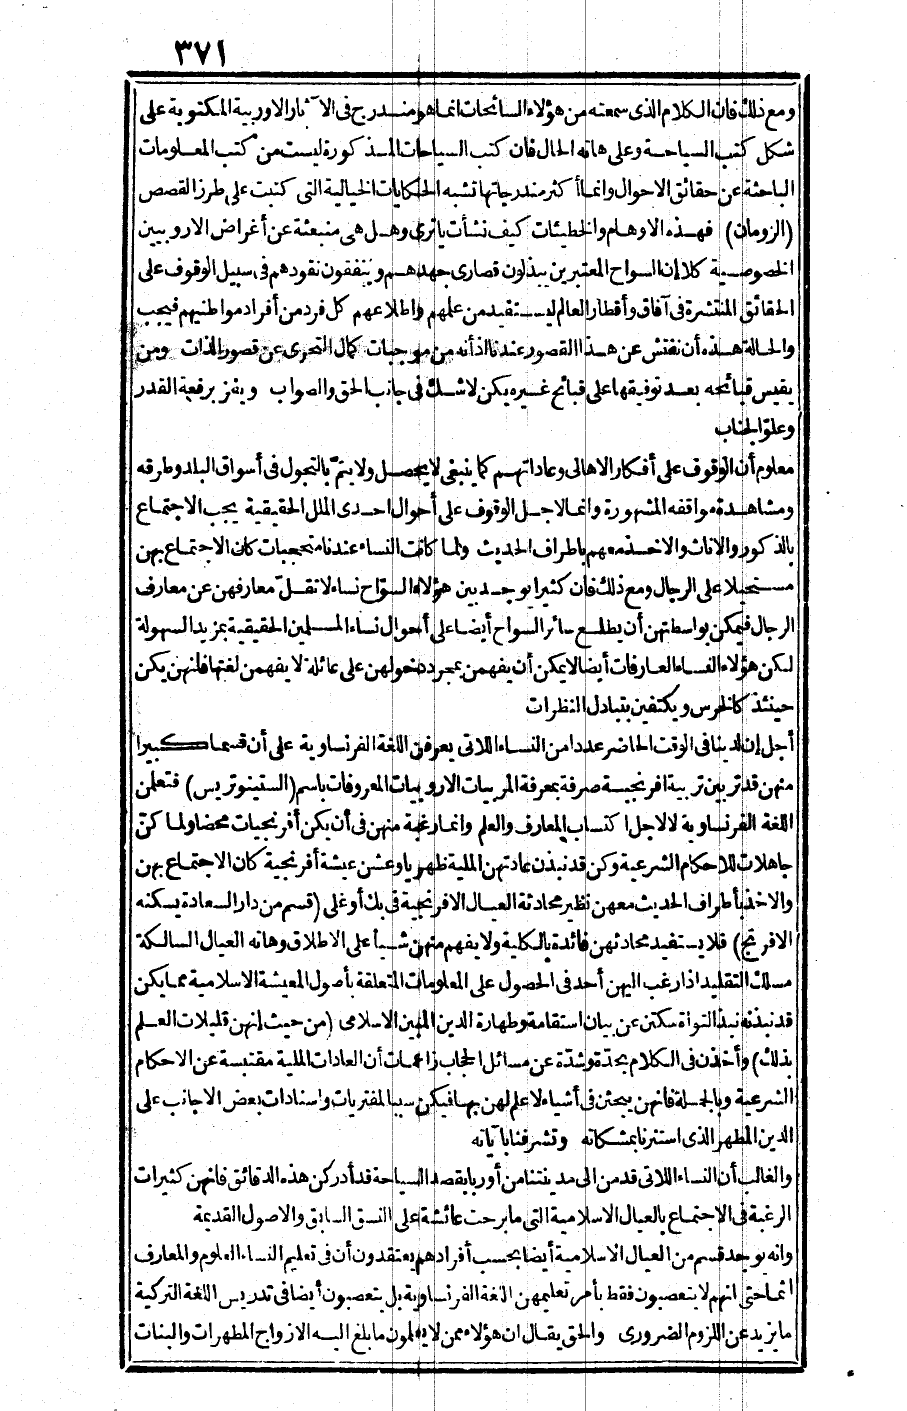 ٣٧١
ومع ذلك فان الكلام الذى سمعته من هؤلاء السائحات انما هو مندرج فى الآثار الاوربية المكتوبة على
شكل كتب السياحة وعلى هاته الحال فان كتب السياحات المذكورة ليست من كتب المعلومات
الباحثة عن حقائق الاحوال وانما أكثر مندرجاتها تشبه الحكايات الخيالية التى كتبت على طرز القصص
(الزومان) فهذه الاوهام والخطيئات كيف نشأت ياترى وهل هى منبعثة عن أغراض الاروبيين
الخصوصية كلا إن السواح المعتبرين يبذلون قصارى جهدهم وينفقون نقودهم فى سبيل الوقوف على
الحقائق المنتشرة فى آفاق وأقطار العالم ليستفيد من علمهم واطلاعهم كل فرد من أفراد مواطنيهم فيجب
والحالة هذه أن نفتش عن هذا القصور عندنا اذ أنه من موجبات كمال التحرى عن قصور الذات ومن
يقيس قبائحه بعد توفيقها على قبائح غيره يكن لاشك فى جانب الحق والصواب ويفز برفعة القدر
وعلو الجناب
معلوم أن الوقوف على أفكار الاهالى وعاداتهم كما ينبغى لايحصل ولا يتم بالتجول فى أسواق البلد وطرقه
ومشاهدة مواقفه المشهورة وانما لاجل الوقوف على أحوال احدى الملل الحقيقية يجب الاجتماع
بالذكور والاناث والاخذ معهم باطراف الحديث ولما كانت النساء عندنا متحجبات كان الاجتماع بهن
مستحيلا على الرجال ومع ذلك فان كثيرا يوجد بين هؤلاء السواح نساء لا تقل معارفهن عن معارف
الرجال فيمكن بواسطتهن أن يطلع سائر السواح أيضا على أحوال نساء المسلمين الحقيقية بمزيد السهولة
لكن هؤلاء النساء العارفات أيضا لا يمكن أن يفهمن بمجرد دخولهن على عائلة لا يفهمن لغتها فانهن يكن
حينئذ كالخرس ويكتفين بتبادل النظرات
أجل إن لدينا فى الوقت الحاضر عددا من النساء اللاتى يعرفن اللغة الفرنساوية على أن قسما كبيرا
منهن قد تربين تربية افرنجية صرفة بمعرفة المربيات الاروبيات المعروفات باسم (الستينوتريس) فتعلمن
اللغة الفرنساوية لا لاجل اكتساب المعارف والعلم وانما رغبة منهن فى أن يكن أفرنجيات محضا ولما كن
جاهلات للاحكام الشرعية وكن قد نبذن عادتهن الملية ظهريا وعشن عيشة أفرنجية كان الاجتماع بهن
والاخذ بأطراف الحديث معهن نظير محادثة العيال الافرنجية فى بك أوغلى (قسم من دار السعادة يسكنه
الافرنج) فلا يستفيد محادثهن فائدة بالكلية ولا يفهم منهن شيأ على الاطلاق وهاته العيال السالكة
مسلك التقليد اذا رغب اليهن أحد فى الحصول على المعلومات المتعلقة بأصول المعيشة الاسلامية مما يكن
قد نبذنه نبذ النواة سكتن عن بيان استقامة وطهارة الدين المبين الاسلامى (من حيث إنهن قليلات العلم
بذلك) وأخذن فى الكلام بحدة وشدة عن مسائل الحجاب زاعمات أن العادات الملية مقتبسة عن الاحكام
الشرعية وبالجملة فانهن يبحثن فى أشياء لا علم لهن بها فيكن سببا لمفتريات واسنادات بعض الاجانب على
الدين المطهر الذى استنرنا بمشكاته وتشرفنا بآياته
والغالب أن النساء اللاتى قدمن الى مدينتنا من أوربا بقصد السياحة قد أدركن هذه الدقائق فانهن كثيرات
الرغبة فى الاجتماع بالعيال الاسلامية التى ما برحت عائشة على النسق السابق والاصول القديمة
وانه يوجد قسم من العيال الاسلامية أيضا بحسب أفرادهم يعتقدون أن فى تعليم النساء العلوم والمعارف
اثما حتى انهم لا يتعصبون فقط بأمر تعليمهن اللغة الفرنساوية بل يتعصبون أيضا فى تدريس اللغة التركية
ما يزيد عن اللزوم الضرورى والحق يقال ان هؤلاء ممن لا يعلمون ما بلغ اليه الازواج المطهرات والبنات